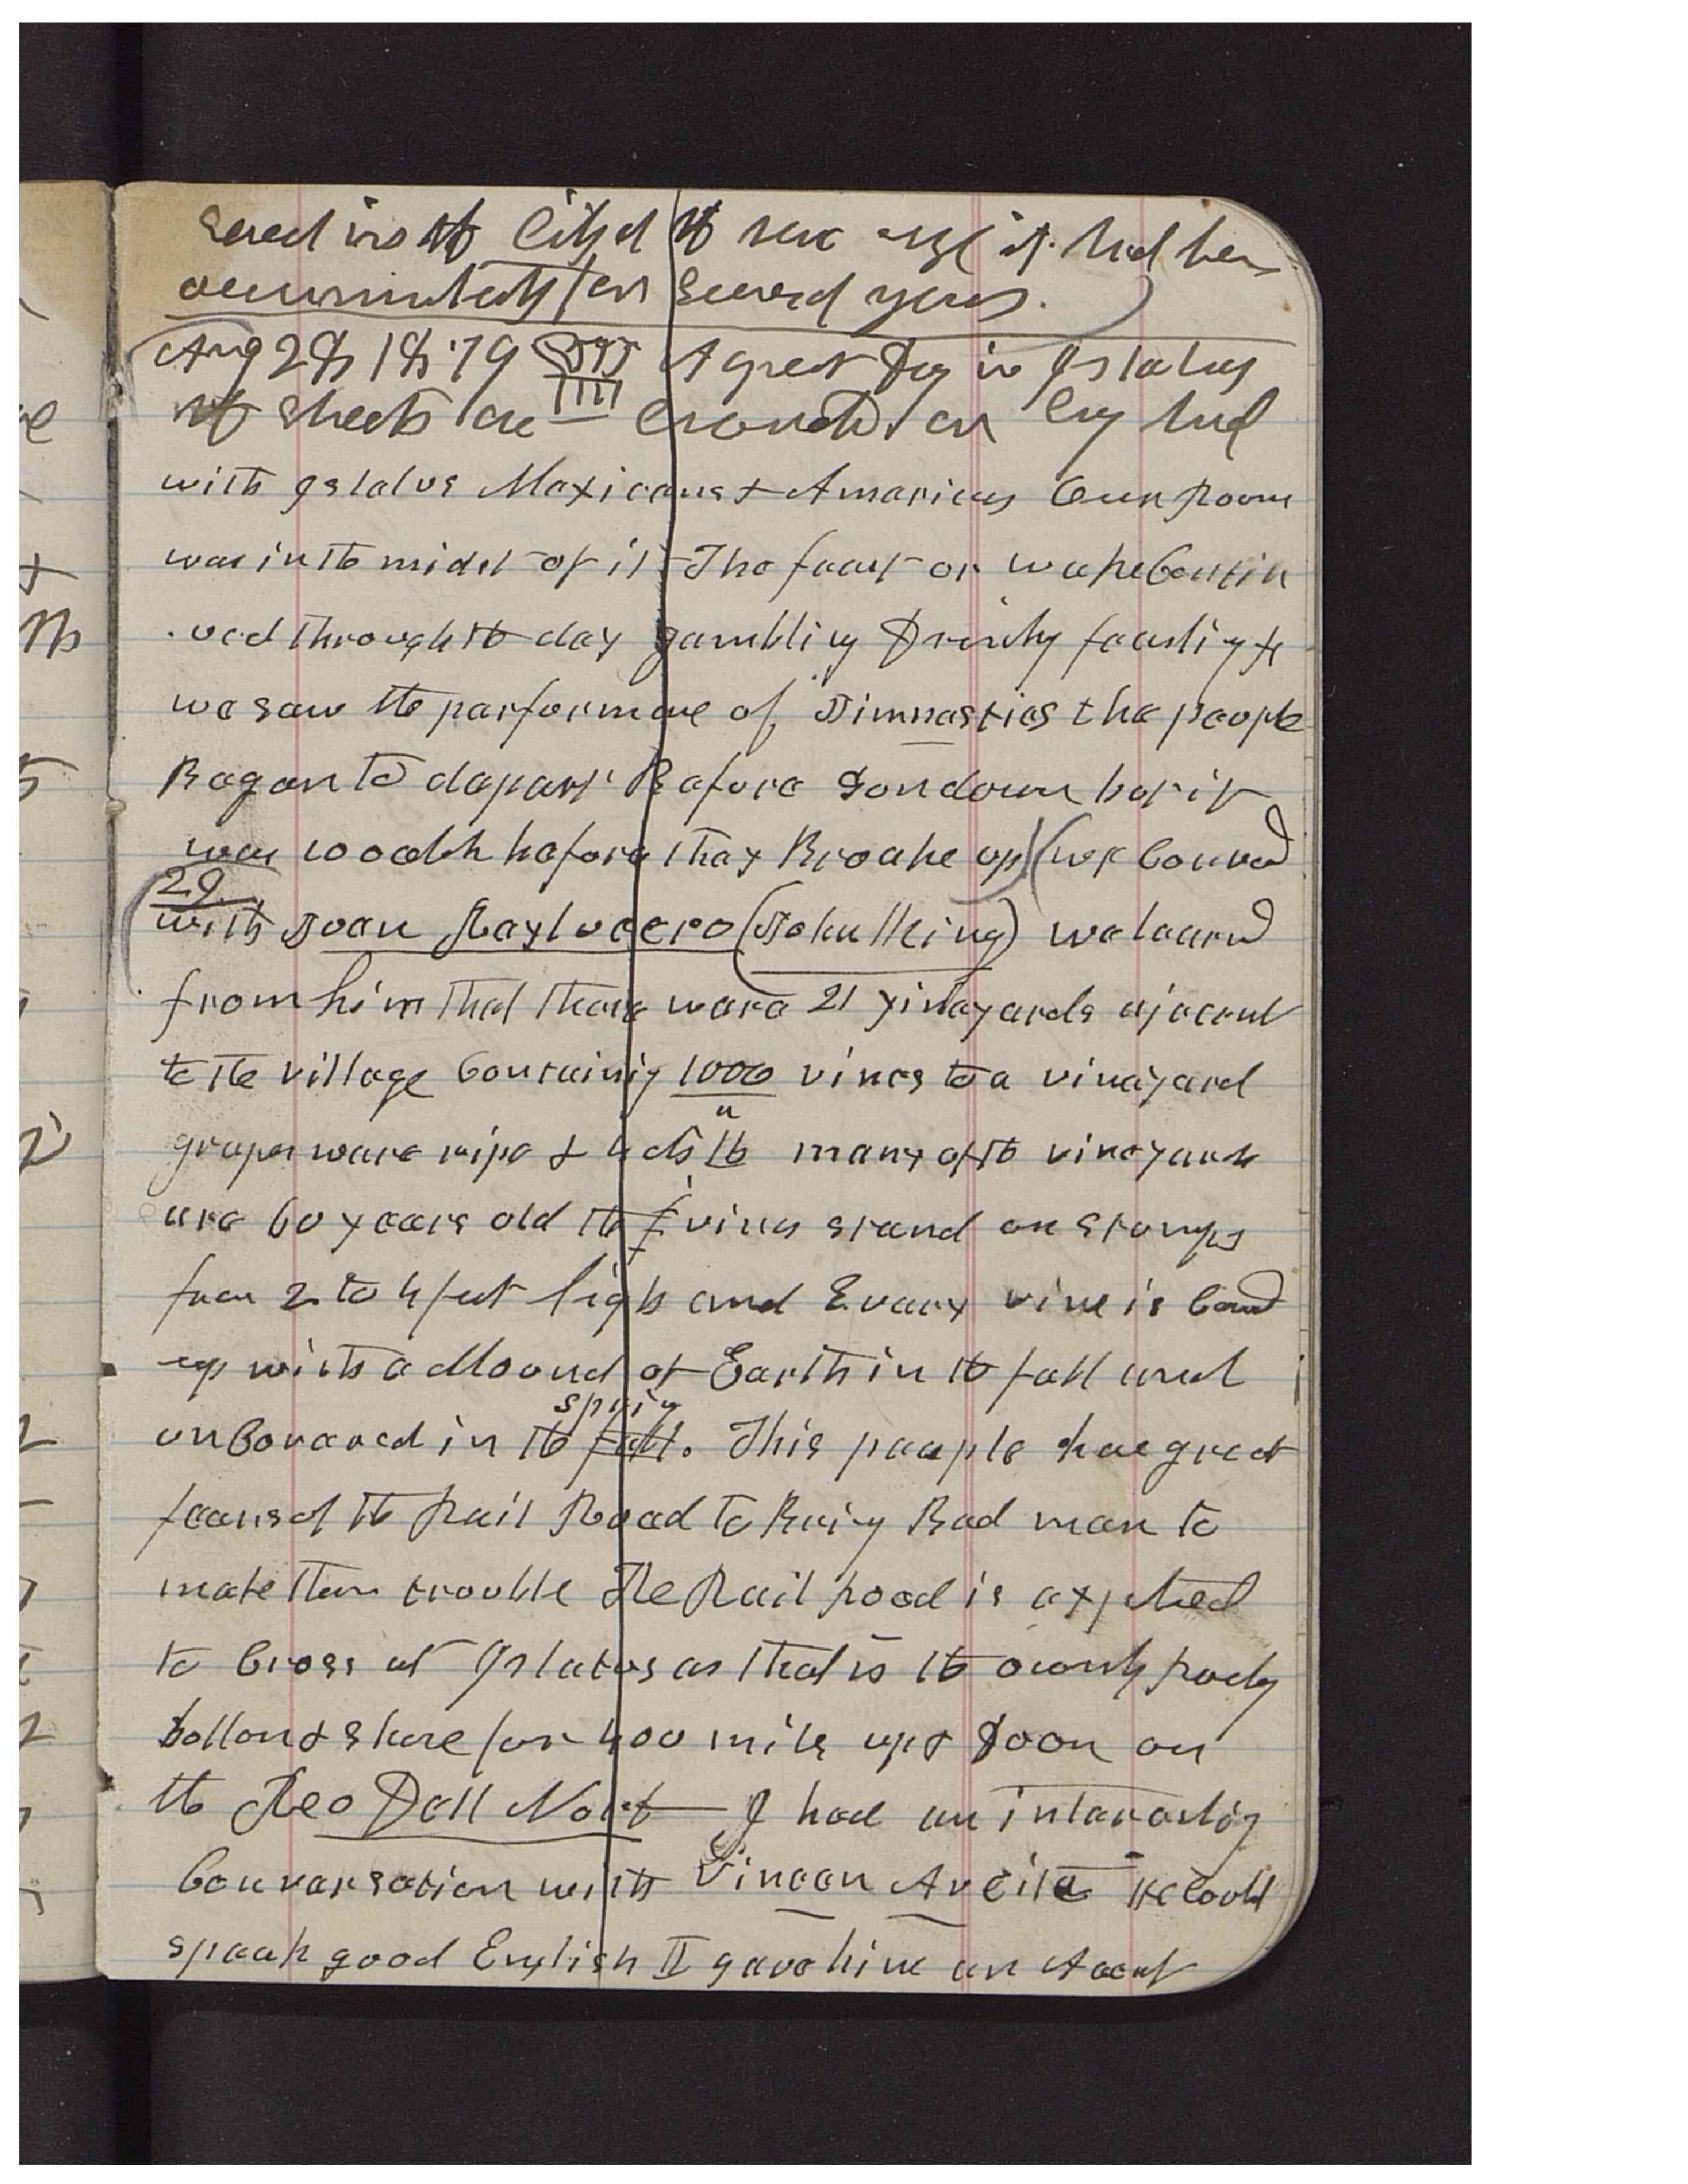 accumulated for Several years.
Aug 28 1879 A great Day in Isletus
streets are crowded
with Islatus Maxicans & Amaricns Our Room
was in the midst of it The feast or wake Contin
ued through the day gambling Drinking feasting &c
we saw the parformance of Jimnastics the people
Began to depart Before Sondown but it
was 10 oclock before thay Broake up we Conversd
29
with Juan Reylucero (John King) we learnd
from him that there ware 21 vineyards ajacent
to the village Containing 1000 vines to a vineyard
grapes ware ripe & 4 cts lb many of the vineyards
are 60 years old the vines stand on stumps
from 2 to 4 feet high and Evary vine is Covd
up with a Mound of Earth in the fall and
unCovared in the fall. spring This people have great
fears of the Rail Road to Bring Bad men to
make them trouble The Rail Road is expected
to Cross at Islatus as that is the ownly rocky
bottom & shore for 400 mile up & Down on
the Reo Dell Nort I had an intaresting
Convarsation with Vincen Aveita He Could
speak good English I gave him an Account